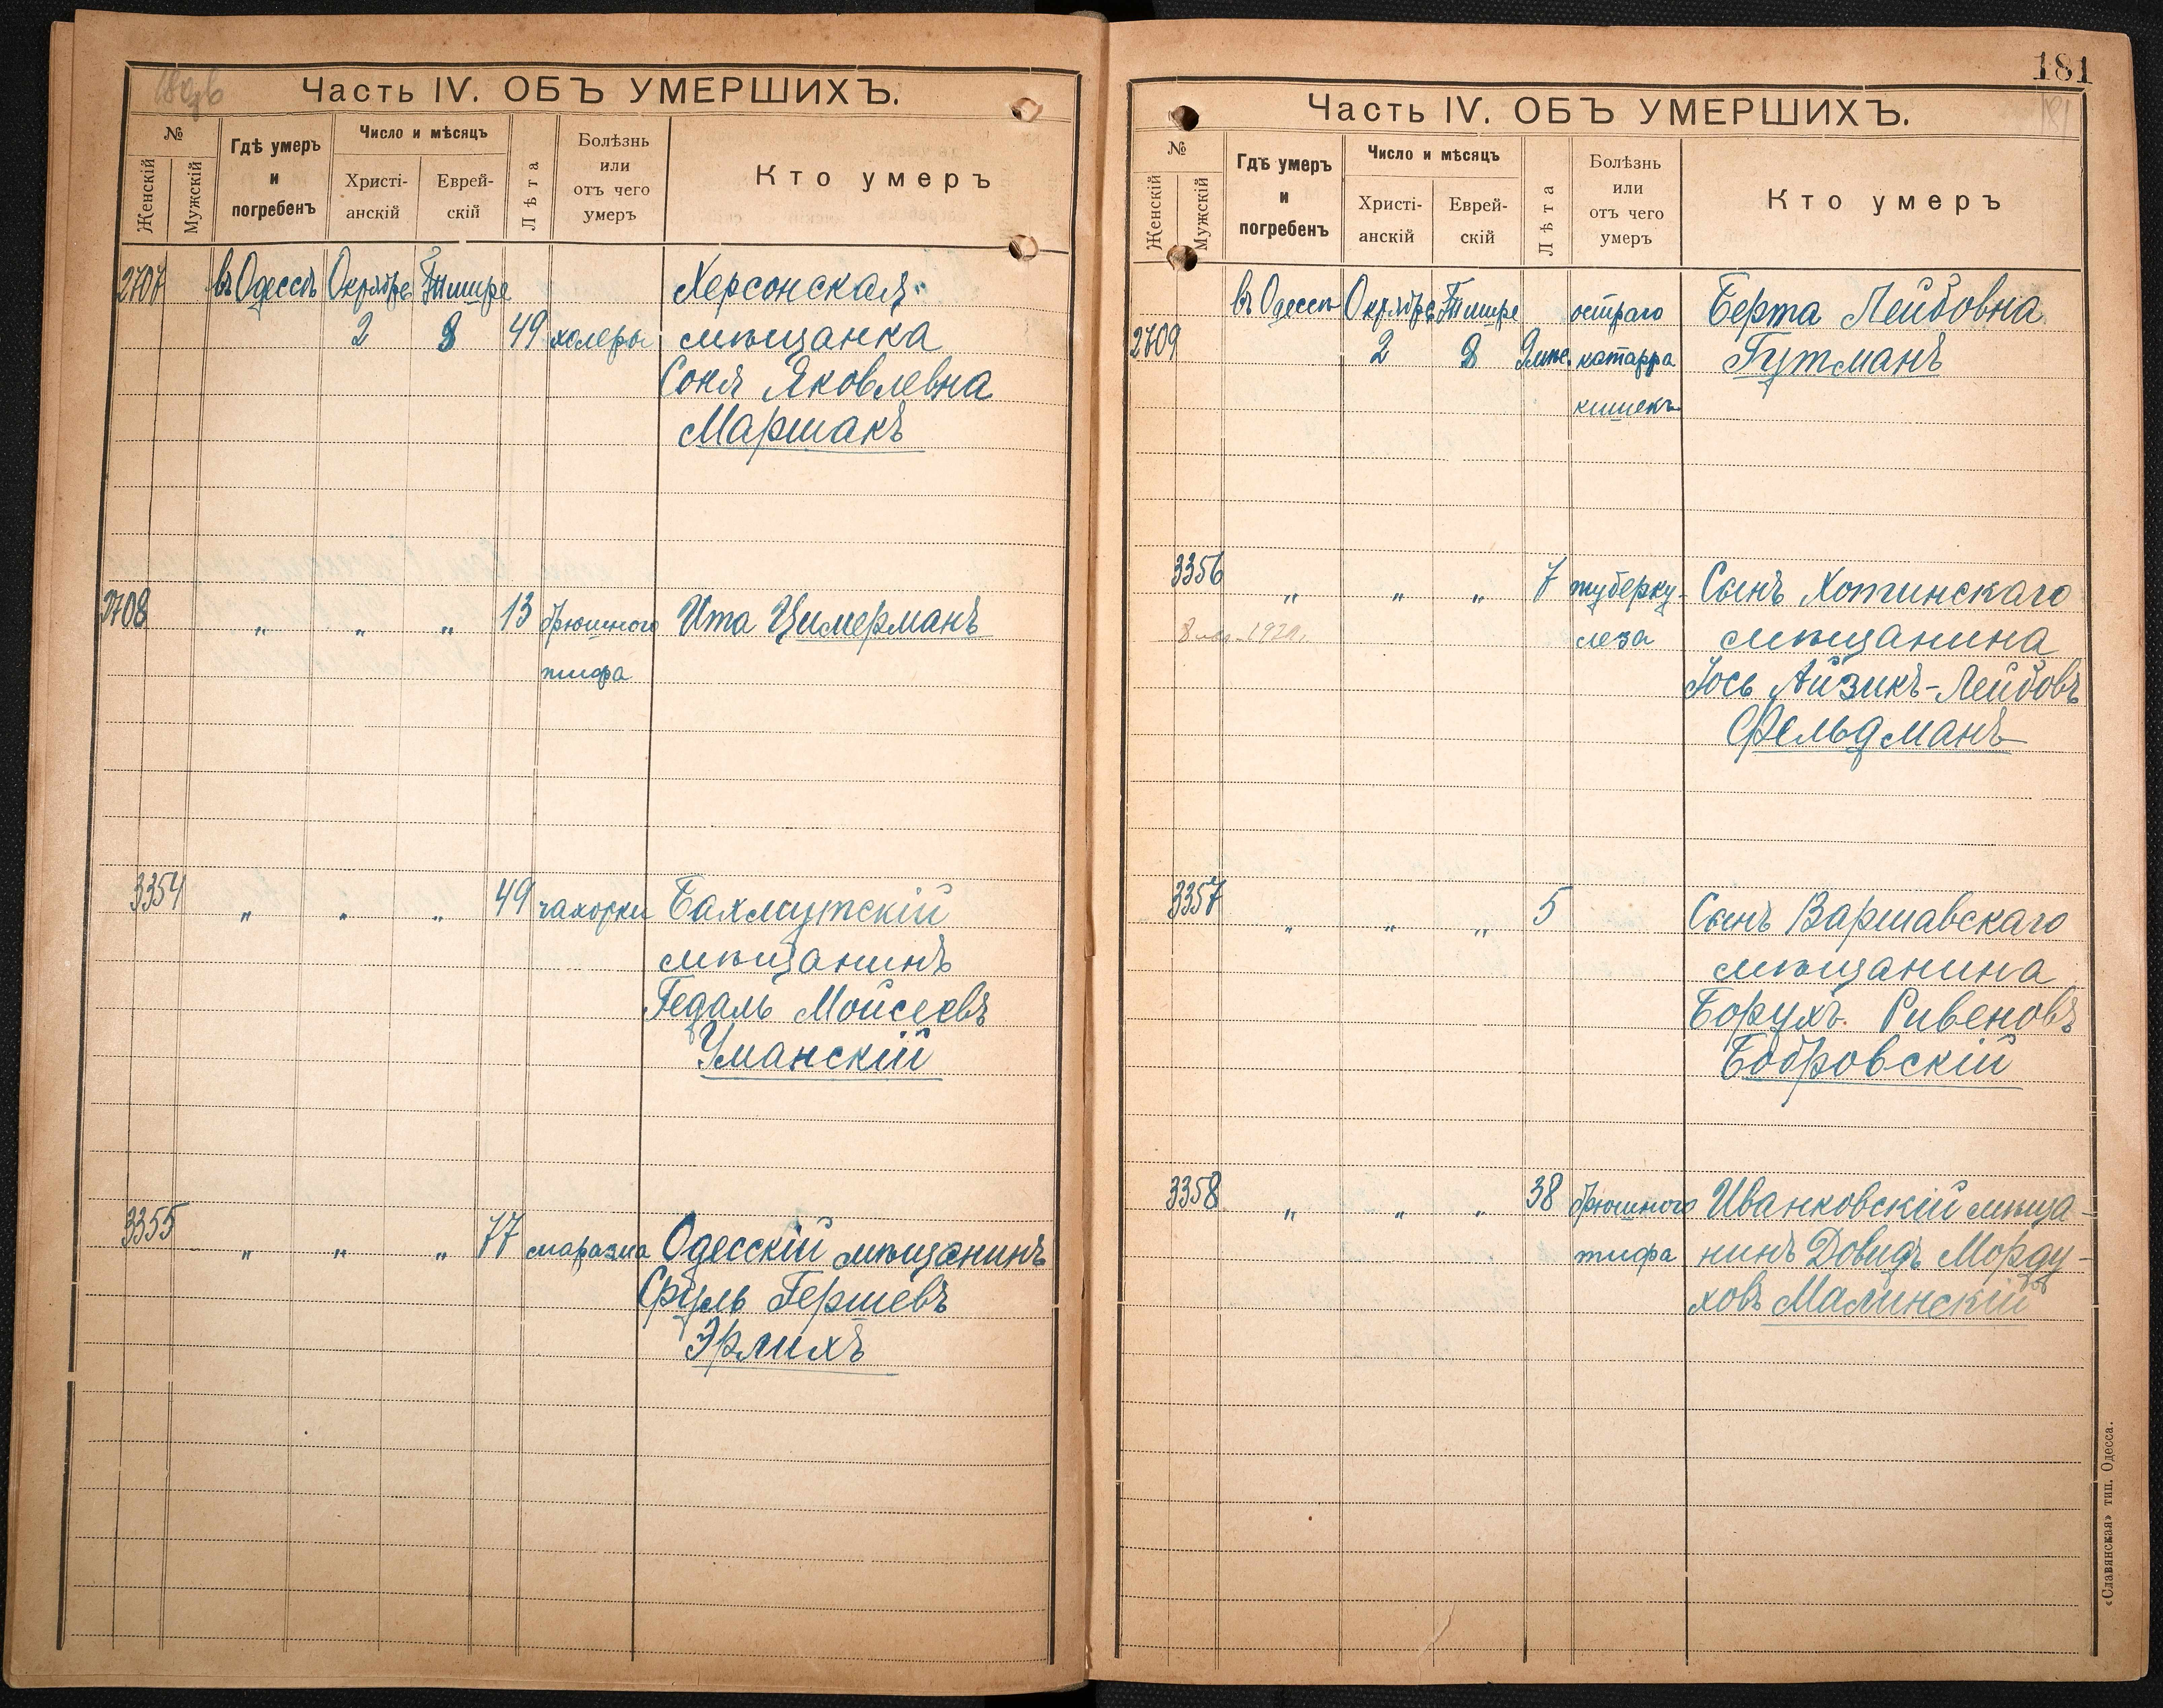 Часть IV. ОБЪ УМЕРШИХЪ.
№
Женскій
Мужскій
Гдѣ умеръ
и
погребенъ
Число и мѣсяцъ
Христі-
анскій
Еврей-
скій
Лѣта
Болѣзнь
или
отъ чего
умеръ
Кто умеръ
2707 въ Одессѣ Октября Тишре Херсонская
2 8 49 холеры мѣщанка
Соня Яковлевна
Маршакъ
2708 " " " 13 брюшного Ита Цимерманъ
тифа
3354 " " " 49 чахотки Бахмутскій
мѣщанинъ
Гедаль Мойсеевъ
Уманскій
3355 " " " 77 маразма Одесскій мѣщанинъ
Сруль Гершевъ
Эрлихъ
181
181
Часть IV. ОБЪ УМЕРШИХЪ.
№
Женскій
Мужскій
Гдѣ умеръ
и
погребенъ
Число и мѣсяцъ
Христі-
анскій
Еврей-
скій
Лѣта
Болѣзнь
или
отъ чего
умеръ
Кто умеръ
въ Одессѣ Октября Тишре остраго Берта Лейбовна
2709 2 8 9 мѣс. катарра Гутманъ
кишекъ
3356 " " " 7 туберку- Сынъ Хотинскаго
леза мѣщанина
Іось Айзикъ-Лейбовъ
Фельдманъ
3357 " " " 5 Сынъ Варшавскаго
мѣщанина
Борухъ Ривеновъ
Бобровскій
3358 " " " 38 брюшного Иванковскій мѣща-
тифа нинъ Довидъ Морду-
ховъ Малинскій
«Славянская» тип. Одесса.